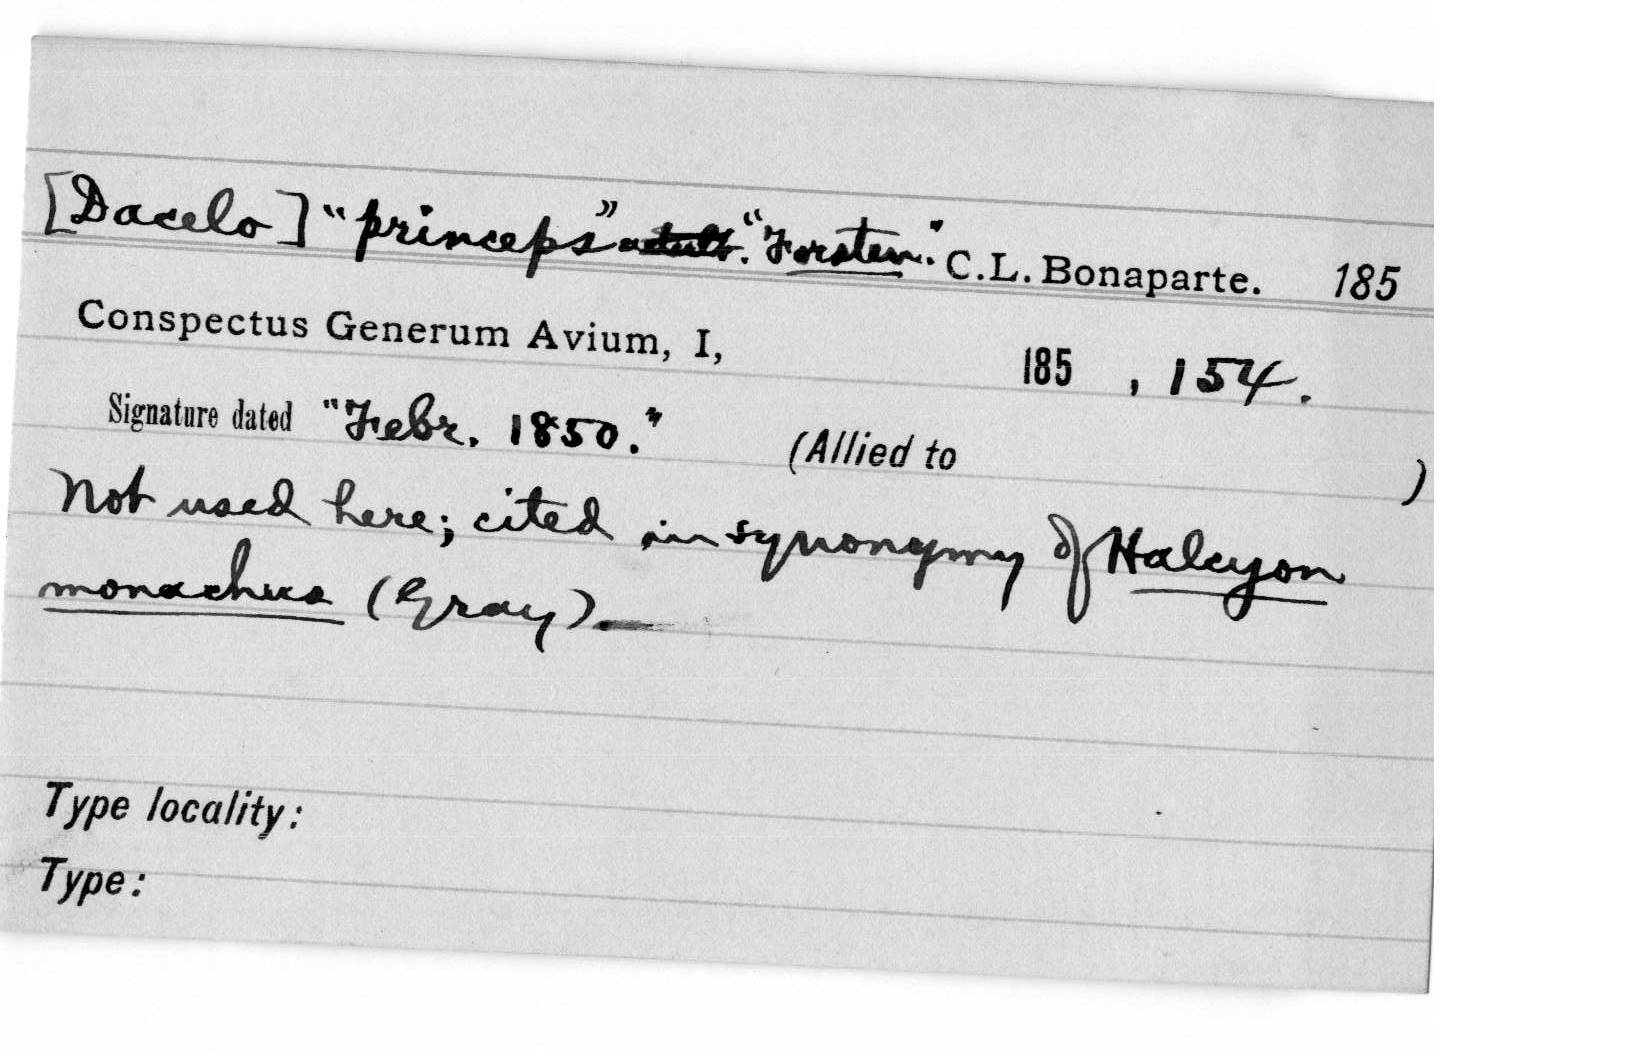 [Dacelo] "princeps" adult. "Forsten." C.L. Bonaparte. 185
Conspectus Generum Avium, I, 185 , 154.
Signature dated "Febr. 1850." (Allied to )
Not used here; cited in synonymy of Halcyon
monachus (Gray).
Type locality:
Type: